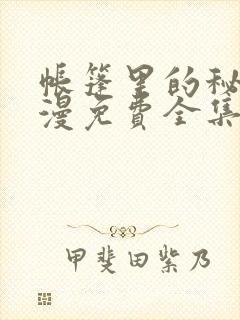 帐篷里的秘
漫免费全集
甲斐田紫乃